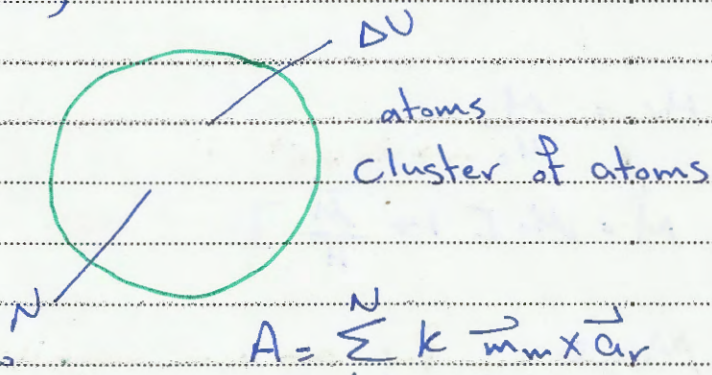 ΔU
atoms
cluster of atoms
N
N
A = Σ k m⃗m × a⃗r